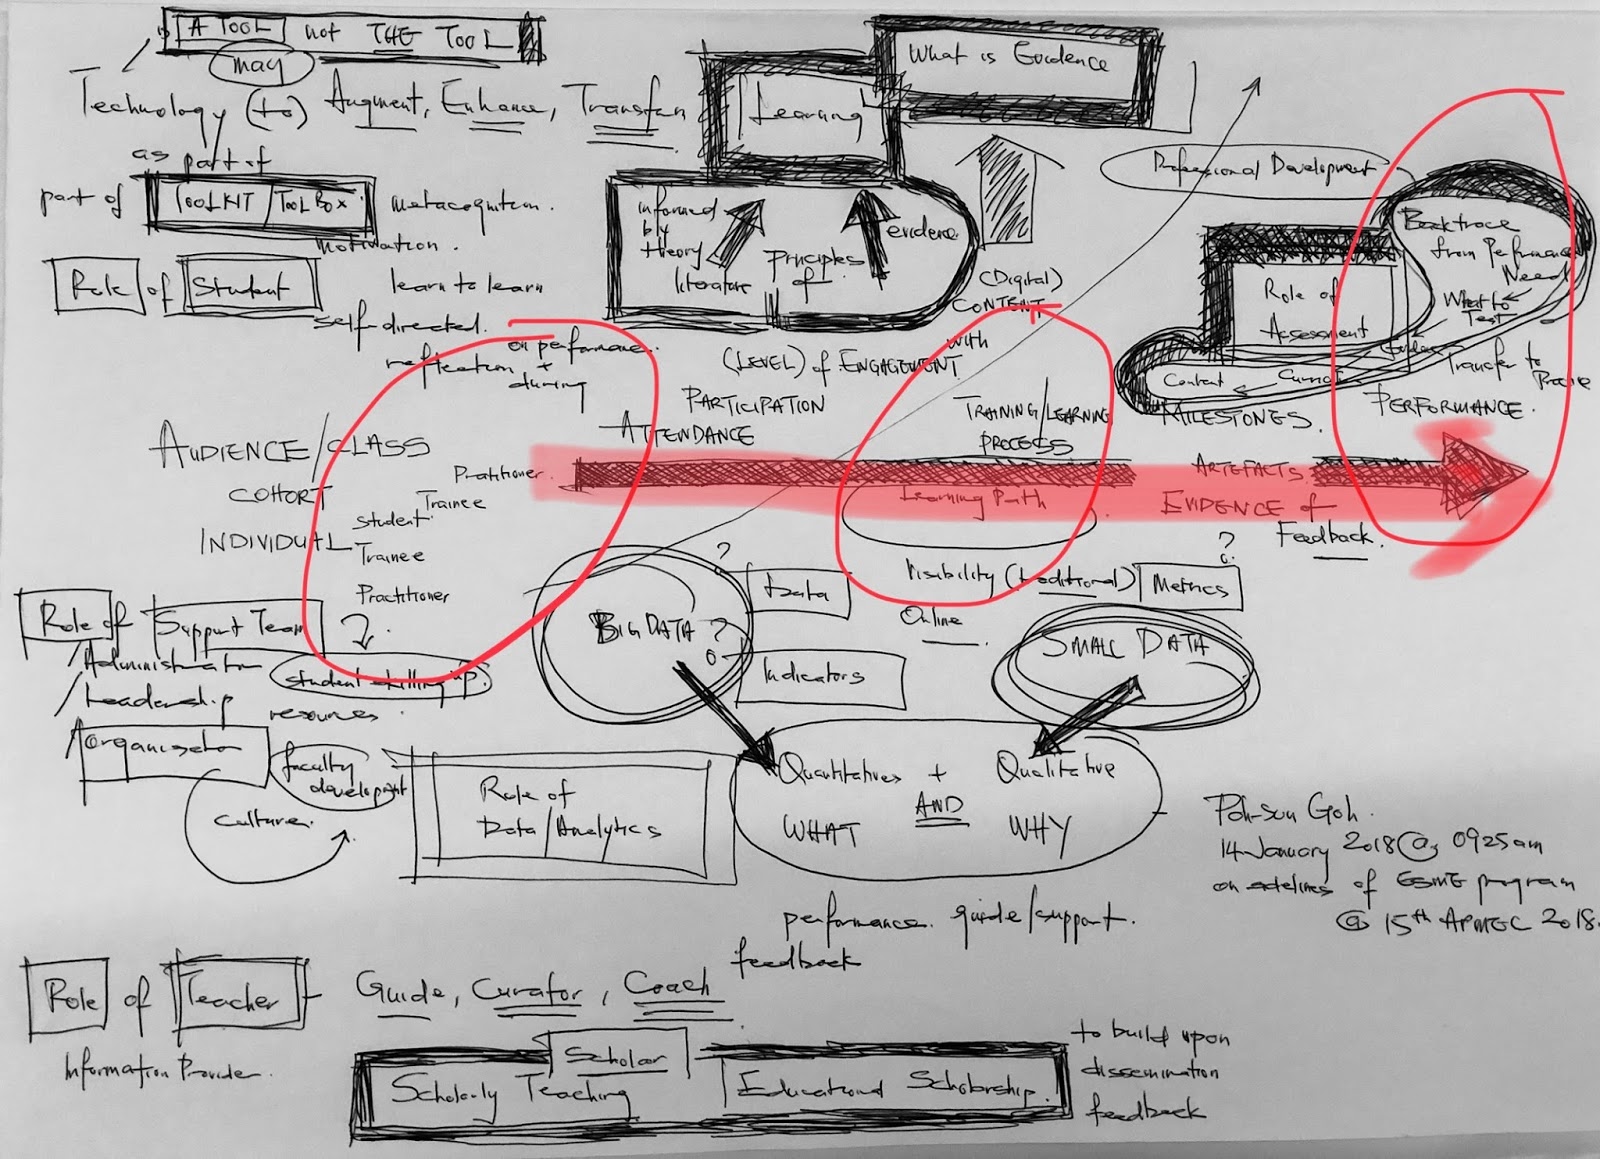 A TOOL not THE TOOL
may
Technology (to) Augment, Enhance, Transform
as part of
part of TOOLKIT/TOOLBOX metacognition.
motivation.
Role of Student learn to learn
self-directed.
reflection on performance.
+ during
What is Evidence
Learning
informed by theory literature
Principles of
evidence
(Digital)
CONTENT
with
(LEVEL) of ENGAGEMENT
PARTICIPATION
ATTENDANCE
TRAINING/LEARNING
PROCESS
Professional Development
Backtrace
from Performance
Need
What to
Test
Role of
Assessment
Content
Transfer to
Practice
MILESTONES.
PERFORMANCE.
AUDIENCE/CLASS
COHORT
INDIVIDUAL
Practitioner.
Trainee
Student.
Trainee
Practitioner
Learning Path
ARTEFACTS.
EVIDENCE of
Feedback.
Visibility (traditional)
Online
Role of Support Team
/Administration
/Leadership
student skilling up.
resources.
/Organisation
faculty
development
culture.
BIG DATA
?
Data
?
Indicators
?
Metrics
SMALL DATA
Role of
Data/Analytics
Quantitatives + Qualitative
AND
WHAT WHY
performance. guide/support.
feedback
Poh-Sun Goh.
14 January 2018 @ 0925am
on sidelines of ESME program
@ 15th APMEC 2018.
Role of Teacher
Guide, Curator, Coach
Information Provider.
Scholar
Scholarly Teaching
Educational Scholarship.
to build upon
dissemination
feedback